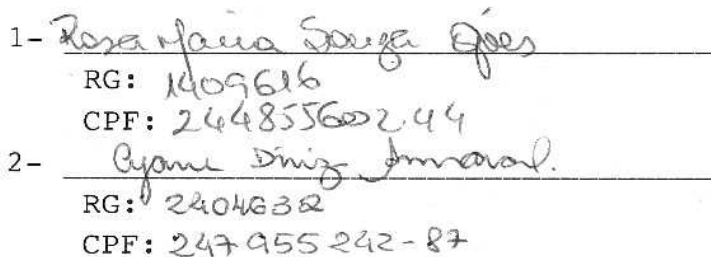 1- Rosa Maria Souza Góes
RG: 1409616
CPF: 244855602.44
2- Cyane Diniz Amaral.
RG: 2404632
CPF: 247955242-87